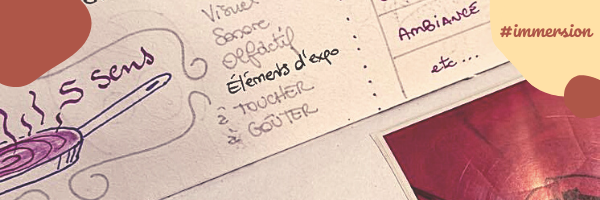 5 sens
Visuel
Sonore
Olfactif
Éléments d'expo
à TOUCHER
à GOÛTER
AMBIANCE
etc ...
#immersion